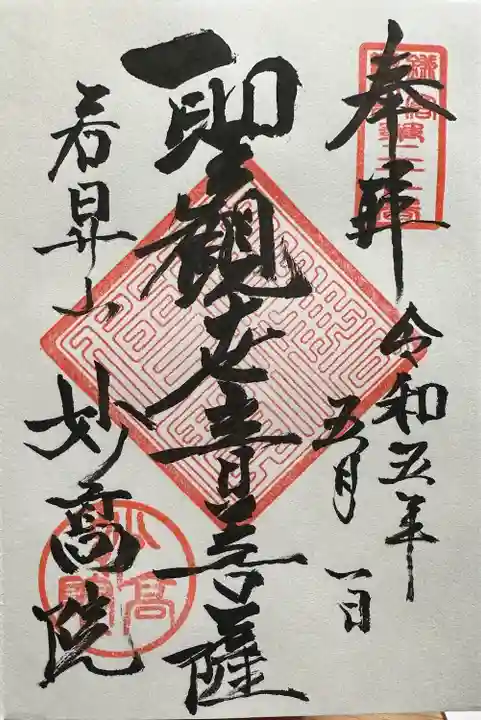 奉拝
令和五年
五月一日
聖観世音菩薩
若昇山 妙高院